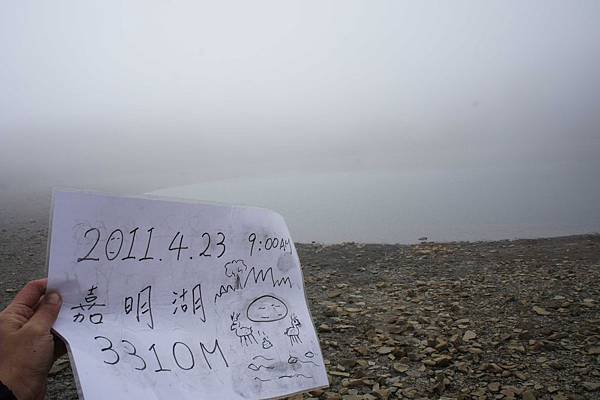 2011.4.23 9:00AM
嘉明湖
3310M